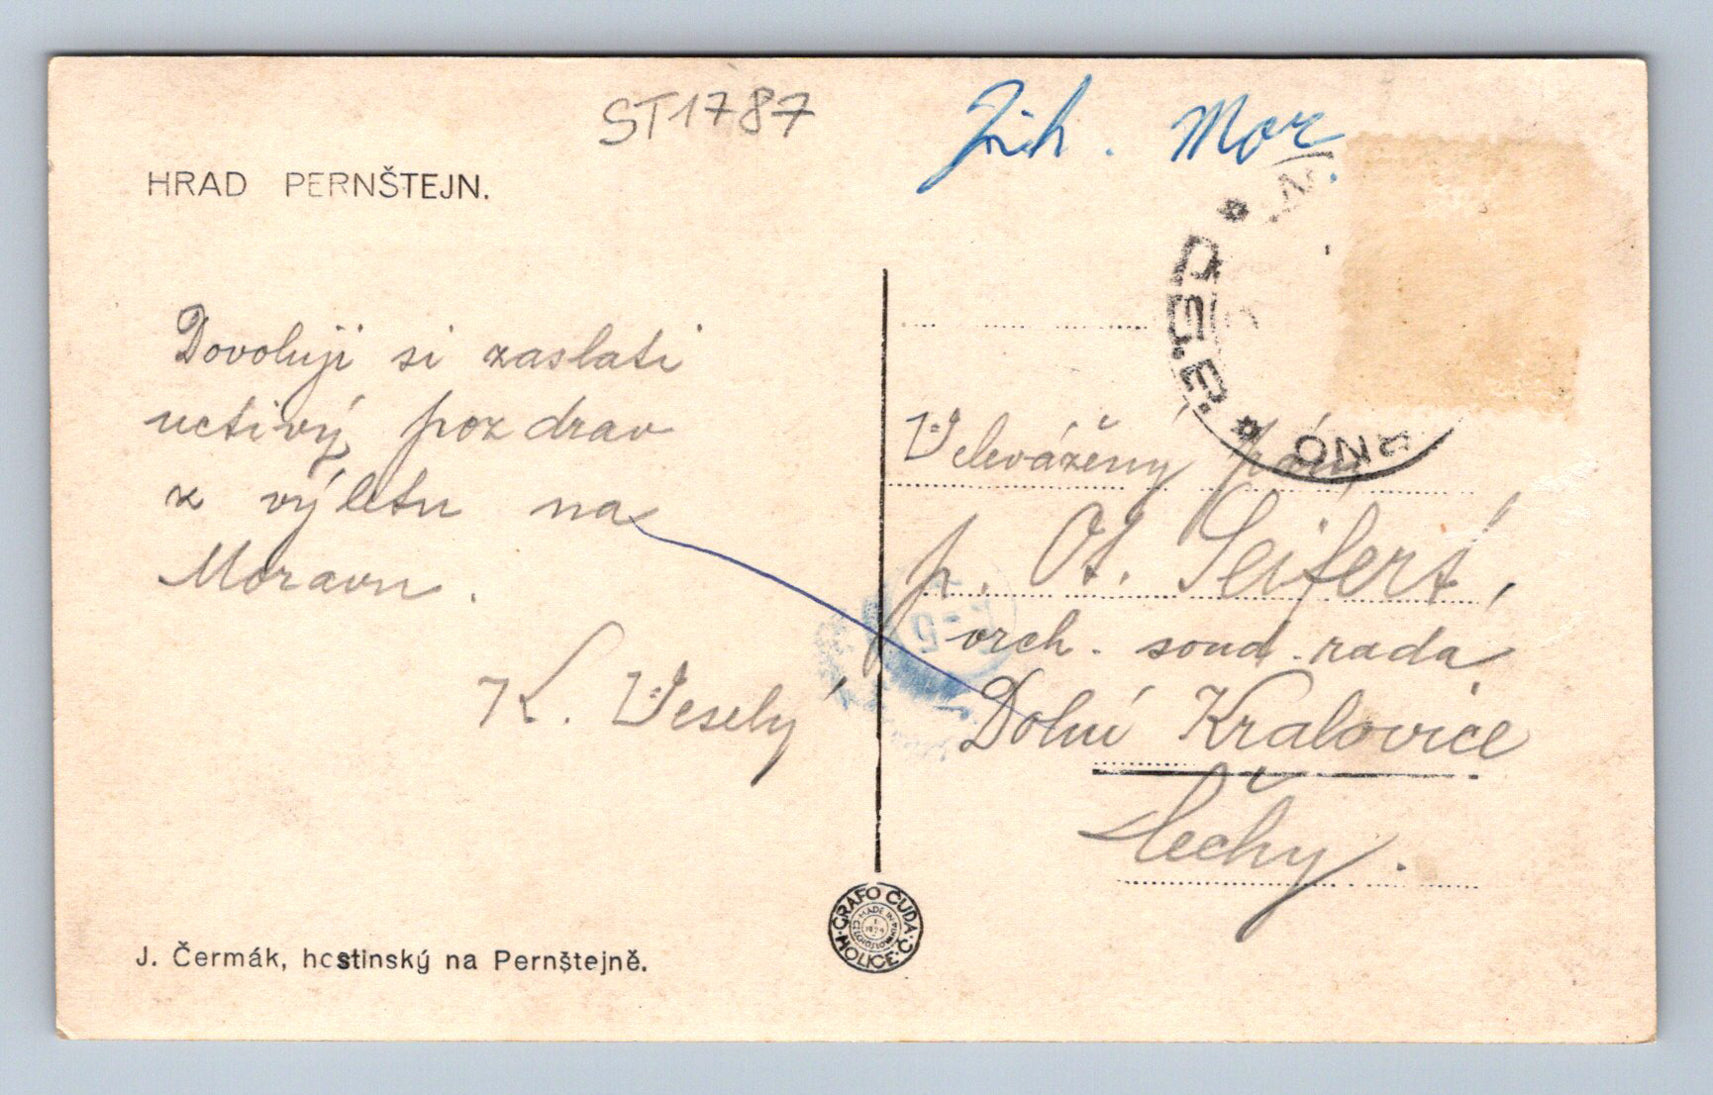 ST1787
Jih. Mor.
HRAD PERNŠTEJN.
Dovoluji si zaslati
uctivý pozdrav
z výletu na
Moravu.
K. Veselý
J. Čermák, hostinský na Pernštejně.
GRAFO ČUDA HOLICE Č.
MADE IN
Č.5.E.
RNO
Velevážený pán
p. Ot. Seifert,
vrch. soud. rada
Dolní Kralovice
Čechy.